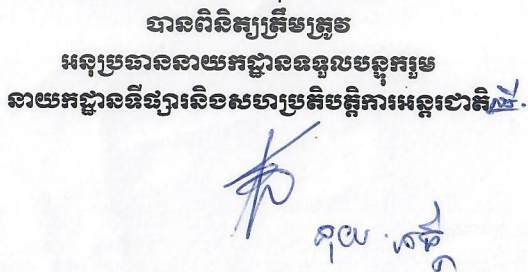 បានពិនិត្យត្រឹមត្រូវ
អនុប្រធាននាយកដ្ឋានទទួលបន្ទុករួម
នាយកដ្ឋានទីផ្សារនិងសហប្រតិបត្តិការអន្តរជាតិ